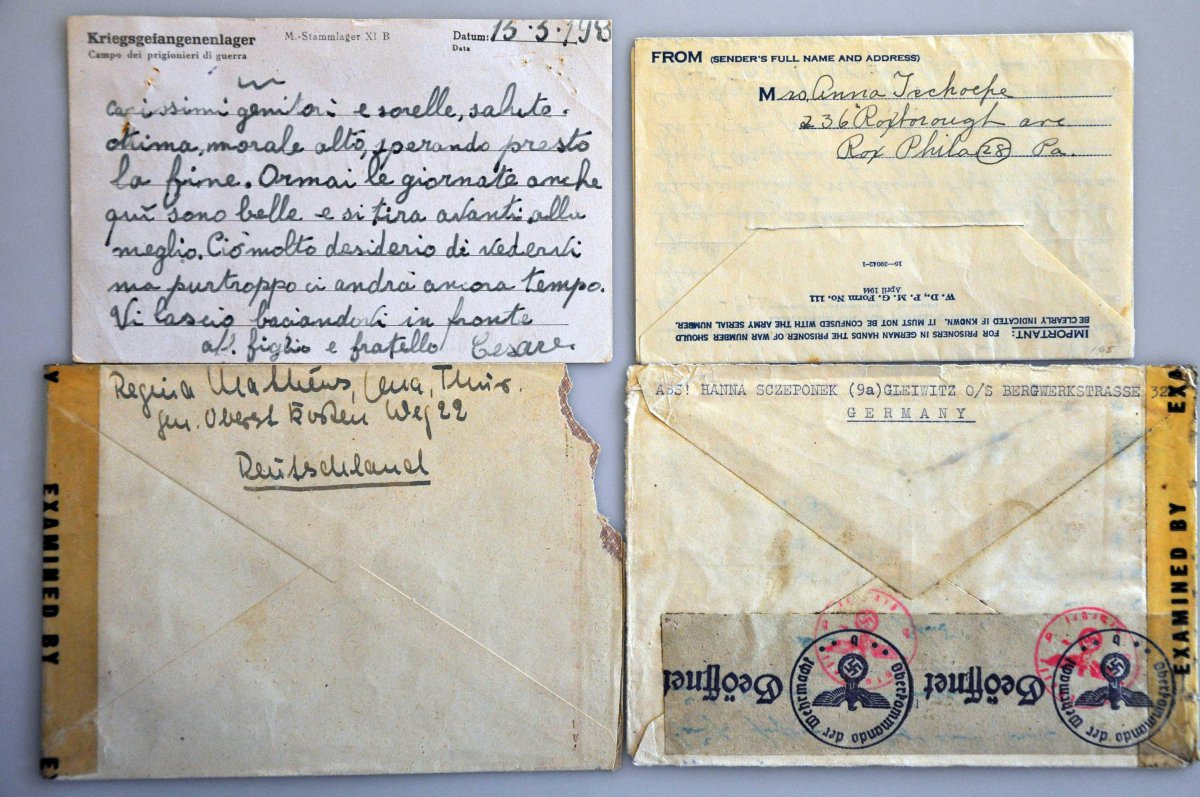 Kriegsgefangenenlager
Campo dei prigionieri di guerra
M.-Stammlager XI B
Datum: 15.5.19
Data
carissimi genitori e sorelle, salute
ottima, morale alto, sperando presto
la fine. Ormai le giornate anche
quì sono belle e si tira avanti alla
meglio. Ciò molto desiderio di vedervi
ma purtroppo ci andrà ancora tempo.
Vi lascio baciandovi in fronte
aff. figlio e fratello Cesare.
FROM (SENDER'S FULL NAME AND ADDRESS)
Mrs. Anna Tschoepe
236 Roxborough ave
Rox Phila (28) Pa.
16—39042-1
W. D., P. M. G. Form No. 111
April 1944
IMPORTANT: FOR PRISONERS IN GERMAN HANDS THE PRISONER OF WAR NUMBER SHOULD
BE CLEARLY INDICATED IF KNOWN. IT MUST NOT BE CONFUSED WITH THE ARMY SERIAL NUMBER.
168
Regina Matthéus, Jena, Thür.
gen. Oberst Weg 22
Deutschland
Y
EXAMINED BY
E
ABS! HANNA SCZEPONEK (9a)GLEIWITZ O/S BERGWERKSTRASSE 32
GERMANY
EXA
EXAMINED BY
Geöffnet
Oberkommando der Wehrmacht
b
Geöffnet
Oberkommando der Wehrmacht
b